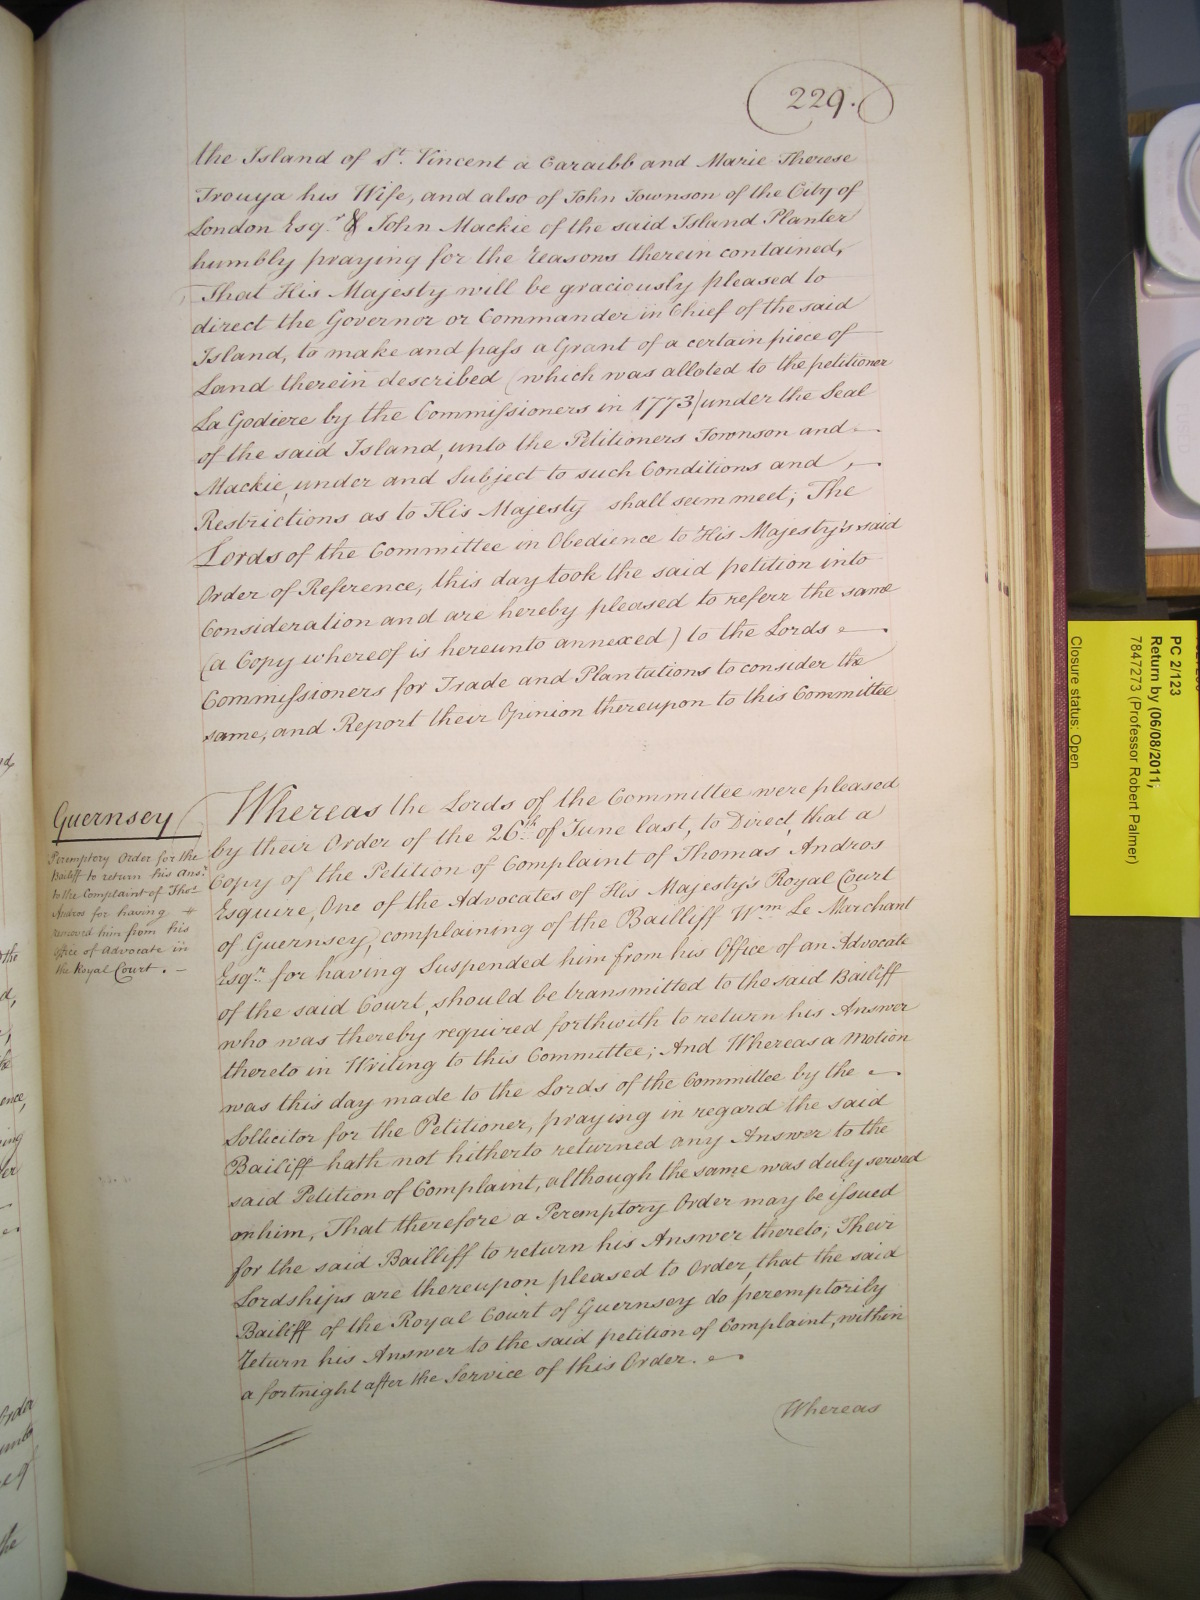 229.
the Island of St. Vincent a Caraibb and Marie Therese
Trouya his Wife, and also of John Townson of the City of
London Esqr. & John Mackie of the said Island Planter
humbly praying for the reasons therein contained,
That His Majesty will be graciously pleased to
direct the Governor or Commander in Chief of the said
Island, to make and pass a Grant of a certain piece of
Land therein described (which was alloted to the petitioner
La Godiere by the Commissioners in 1773) under the Seal
of the said Island, unto the Petitioners Townson and
Mackie, under and Subject to such Conditions and
Restrictions as to His Majesty shall seem meet; The
Lords of the Committee in Obedience to His Majesty's said
Order of Reference, this day took the said petition into
Consideration and are hereby pleased to referr the same
(a Copy whereof is hereunto annexed) to the Lords
Commissioners for Trade and Plantations to consider the
same, and Report their Opinion thereupon to this Committee
Guernsey
Peremptory Order for the
Bailiff to return his Ansr.
to the Complaint of Thos.
Andros for having
removed him from his
Office of Advocate in
the Royal Court.
Whereas the Lords of the Committee were pleased
by their Order of the 26th of June last, to Direct, that a
Copy of the Petition of Complaint of Thomas Andros
Esquire, One of the Advocates of His Majesty's Royal Court
of Guernsey, complaining of the Bailliff Wm Le Marchant
Esqr. for having Suspended him from his Office of an Advocate
of the said Court, should be transmitted to the said Bailiff
who was thereby required forthwith to return his Answer
thereto in Writing to this Committee; And Whereas a Motion
was this day made to the Lords of the Committee by the
Sollicitor for the Petitioner, praying in regard the said
Bailiff hath not hitherto returned any Answer to the
said Petition of Complaint, although the same was duly served
on him, That therefore a Peremptory Order may be issued
for the said Bailliff to return his Answer thereto; Their
Lordships are thereupon pleased to Order, that the said
Bailiff of the Royal Court of Guernsey do peremptorily
return his Answer to the said petition of Complaint, within
a fortnight after the Service of this Order.
Whereas
PC 2/123
Return by (06/08/2011;
7847273 (Professor Robert Palmer)
Closure status: Open